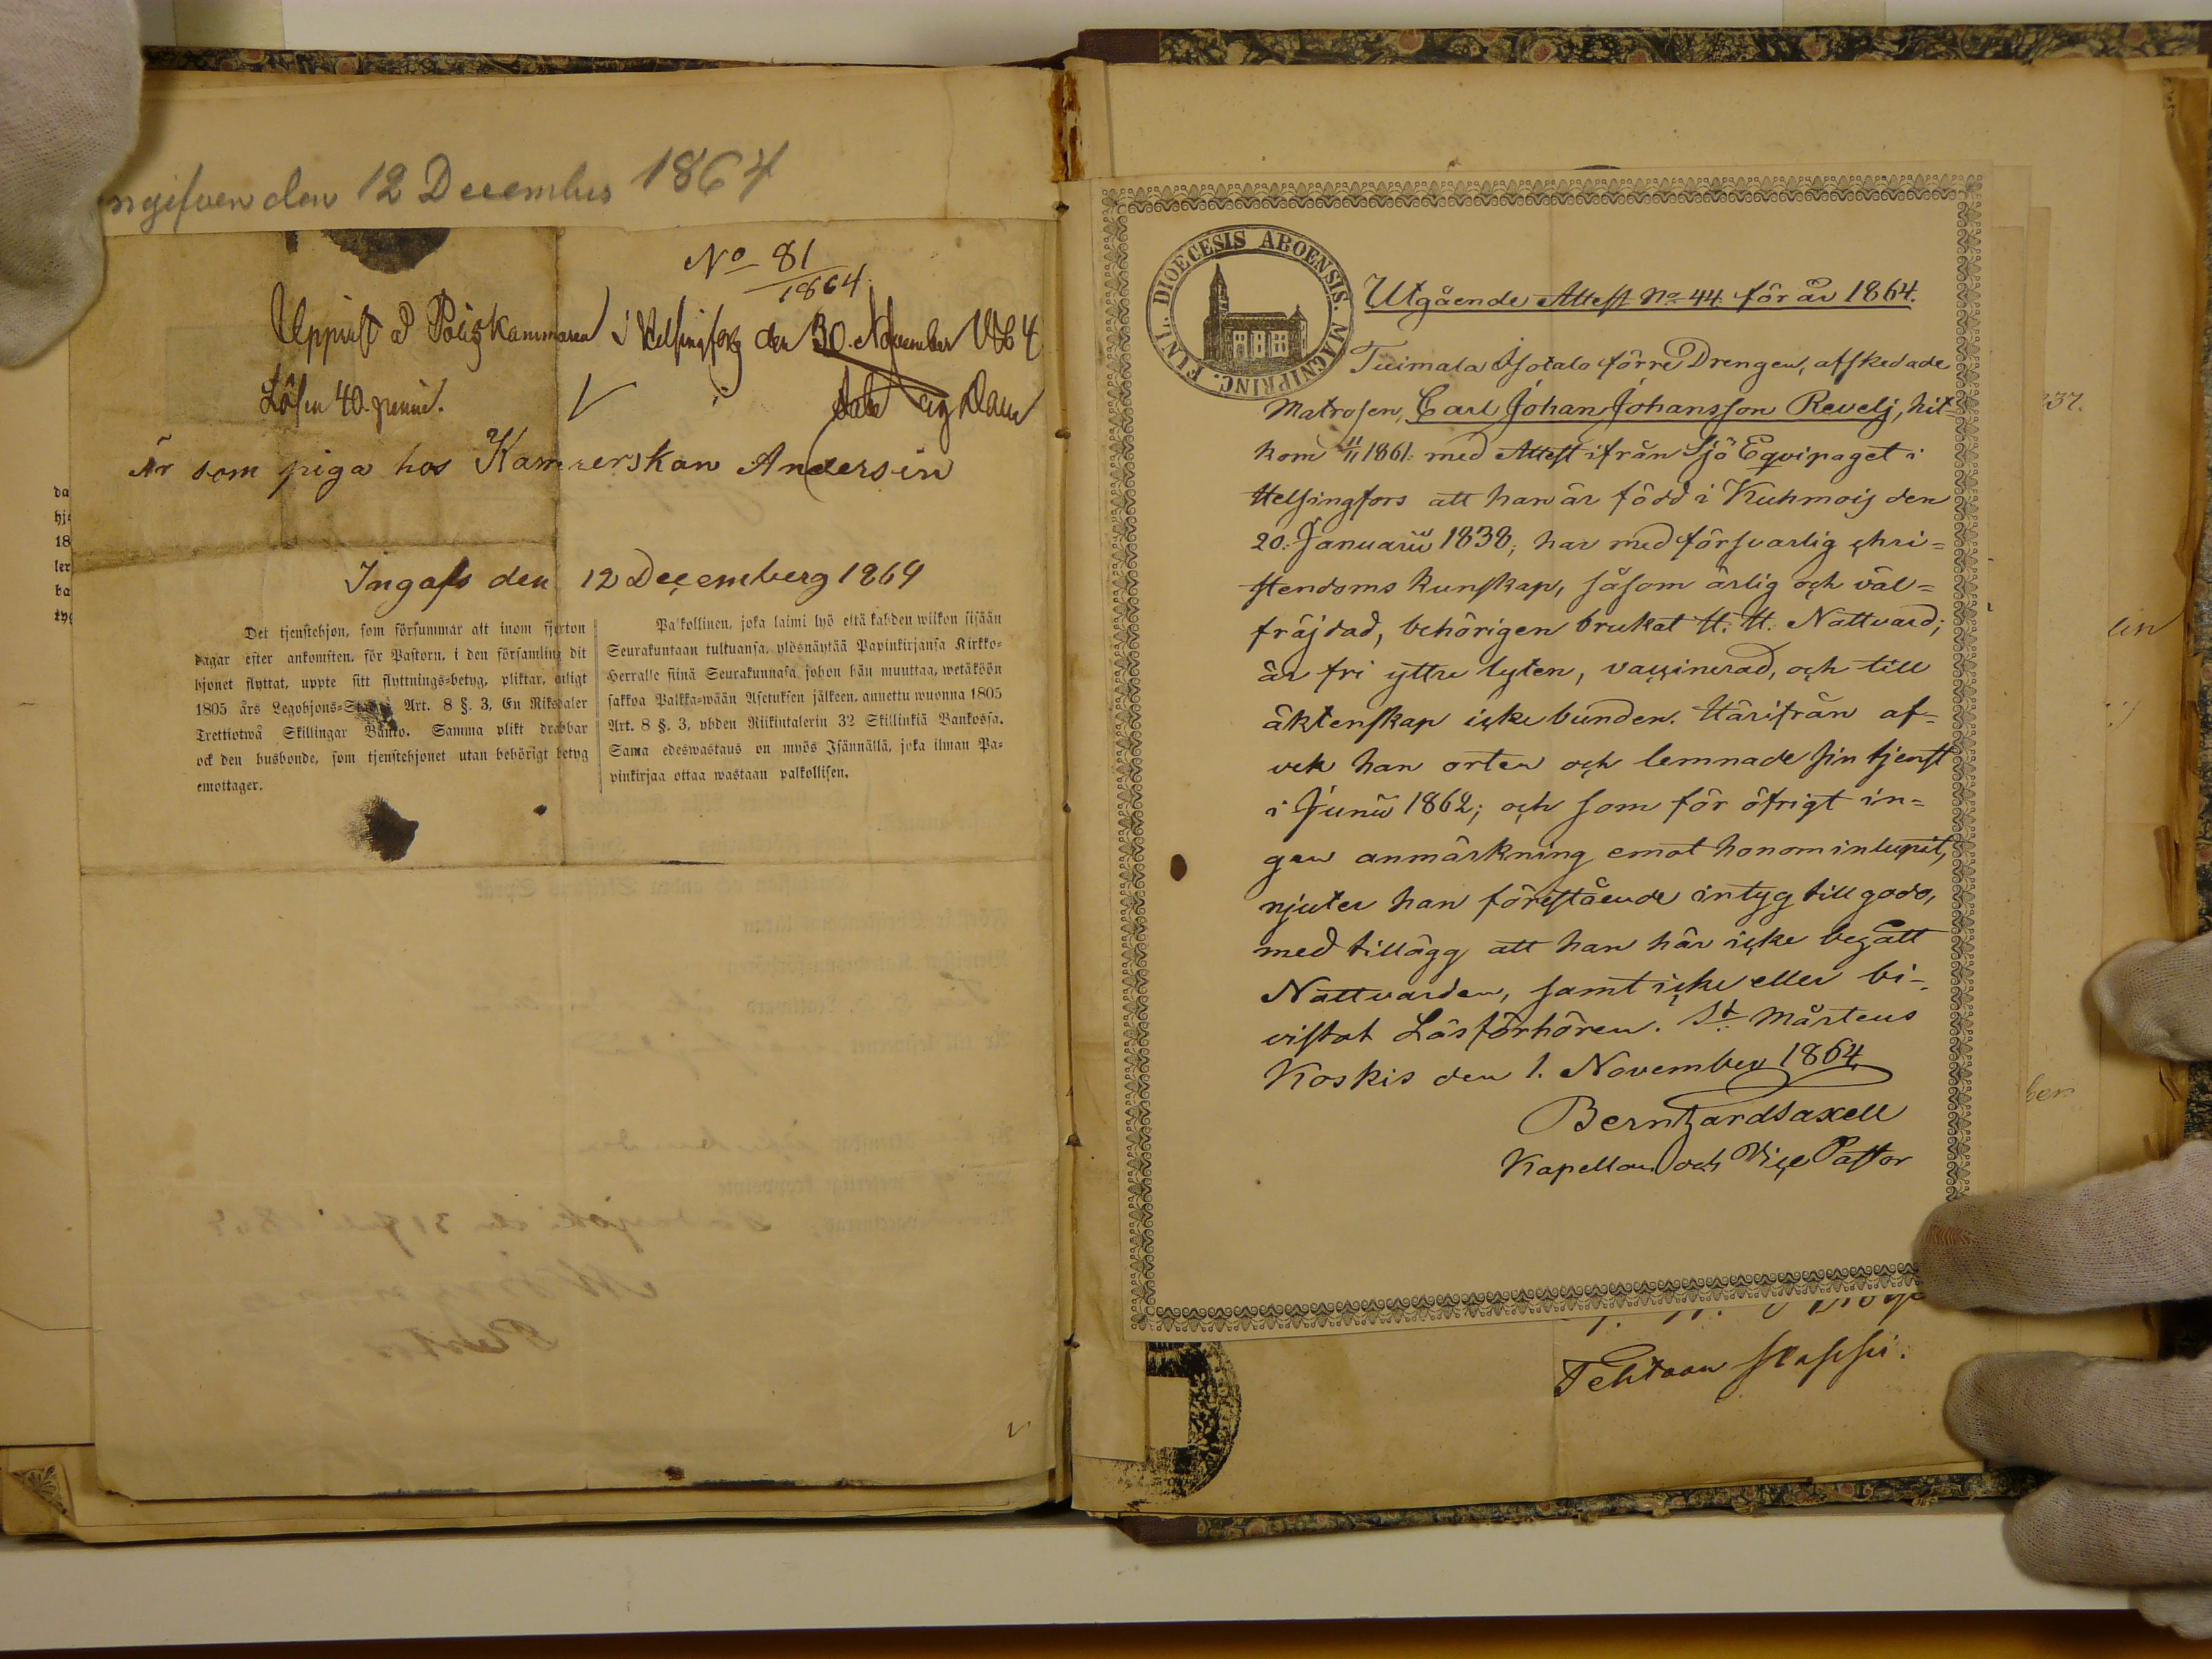 ngifven den 12 December 1864
No 81
1864
Uppvist å Poliskammaren i Helsingfors den 30. November 1864
Lösen 40. penni.
Är som piga hos Kamrerskan Andersin
Ingafs den 12 Decembeg 1864
Det tjenstehjon, som försummar att inom fjorton
dagar efter ankomsten, för Pastorn, i den församling dit
hjonet flyttat, uppte sitt flyttnings=betyg, pliktar, enligt
1805 års Legohjons=Stadga Art. 8 §. 3, En Riksdaler
Trettiotwå Skillingar Banko. Samma plikt drabbar
ock den husbonde, som tjenstehjonet utan behörigt betyg
emottager.
Palkollinen, joka laimi lyö että kahden wiikon sisään
Seurakuntaan tultuansa, ylösnäytää Papinkirjansa Kirkko=
Herralle siinä Seurakunnasa, johon hän muuttaa, wetäköön
sakkoa Palkka=wään Asetuksen jälkeen, annettu wuonna 1805
Art. 8 §. 3, yhden Riikintalerin 32 Skillinkiä Bankossa.
Sama edeswastaus on myös Isännällä, joka ilman Pa=
pinkirjaa ottaa wastaan palkollisen.
DIOECESIS ABOENSIS. MAGNI PRINC. FINL.
Utgående Attest No 44. för år 1864.
Tuimala Isotalo förre Drengen, afskedade
Matrosen, Carl Johan Johansson Revelj, hit=
kom 4/11 1861. med Attest ifrån Sjö Eqvipaget i
Helsingfors att han är född i Kuhmois den
20. Januarii 1838; har med försvarlig chri=
stendoms kunskap, såsom ärlig och väl=
fräjdad, behörigen brukat H. H. Nattvard;
är fri yttre lyten, vaccinerad, och till
äktenskap icke bunden. Härifrån af=
vek han orten och lemnade sin tjenst
i Junii 1862; och som för öfrigt in=
gen anmärkning emot honom inlupit,
njuter han förestående intyg till godo,
med tillägg att han här icke begått
Nattvarden, samt icke eller bi=
vistat Läsförhören. St Mårtens
Koskis den 1. November 1864.
Bernhard Saxell
Kapellan och Vice Pastor
Tehtaan